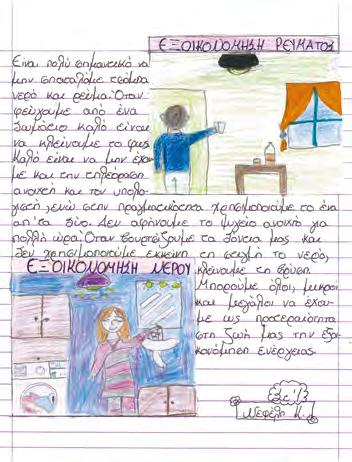 ΕΞΟΙΚΟΝΟΜΗΣΗ ΡΕΥΜΑΤΟΣ
Είναι πολύ σημαντικό να
μην σπαταλάμε τσάμπα
νερό και ρεύμα. Όταν
φεύγουμε από ένα
δωμάτιο καλό είναι
να κλείνουμε το φως.
Καλό είναι να μην έχου-
με και την τηλεόραση
ανοιχτή και τον υπολο-
γιστή, ενώ στην πραγματικότητα χρησιμοποιούμε το ένα
απ'τα δύο. Δεν αφήνουμε το ψυγείο ανοιχτό για
πολλή ώρα. Όταν βουρτσίζουμε τα δόντια μας και
δεν χρησιμοποιούμε εκείνη τη στιγμή το νερό,
ΕΞΟΙΚΟΝΟΜΗΣΗ ΝΕΡΟΥ
κλείνουμε τη βρύση.
Μπορούμε όλοι, μικροί
και μεγάλοι να έχου-
με ως προτεραιότητα
στη ζωή μας την εξοι-
κονόμηση ενέργειας.
Νεφέλη Κ.